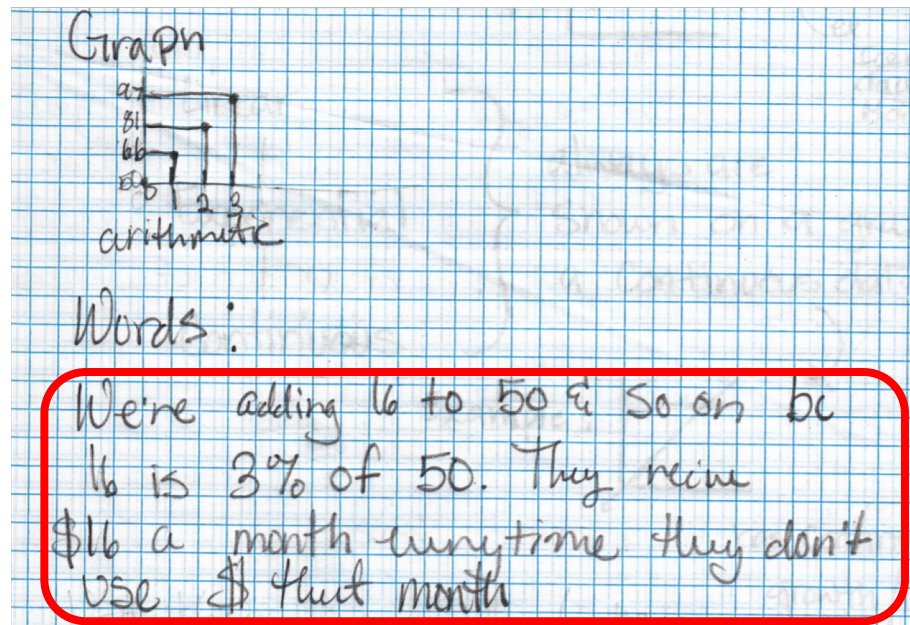 Graph
97
81
66
50
0 1 2 3
arithmetic
Words:
We're adding 16 to 50 & so on bc
16 is 3% of 50. They recive
$16 a month everytime they don't
use $ that month